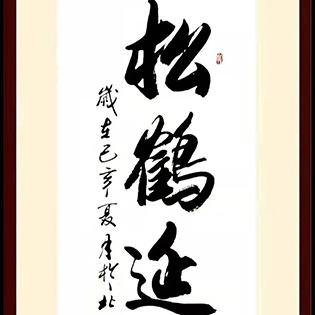 松鹤延
歲在己亥夏月於北